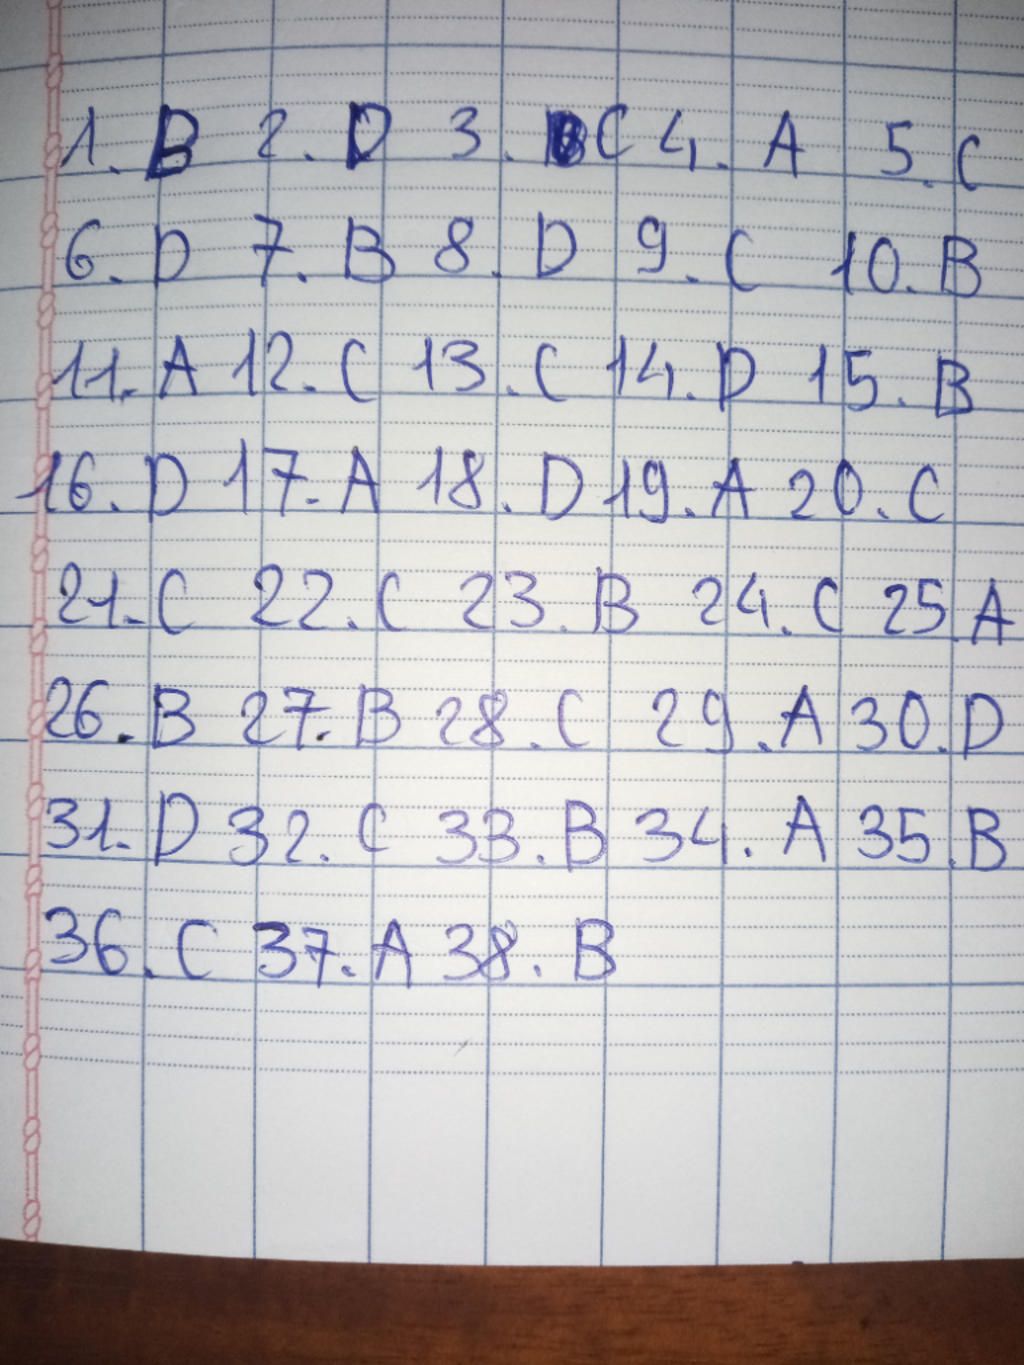 1. B 2. D 3. C 4. A 5. C
6. D 7. B 8. D 9. C 10. B
11. A 12. C 13. C 14. D 15. B
16. D 17. A 18. D 19. A 20. C
21. C 22. C 23. B 24. C 25 A
26. B 27. B 28. C 29. A 30. D
31. D 32. C 33. B 34. A 35. B
36. C 37. A 38. B